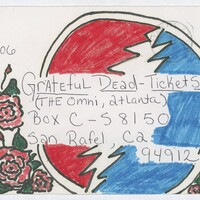 06
Grateful Dead-Tickets
(THE Omni, atlanta)
Box C-S 8150
San Rafel, Ca.
94912